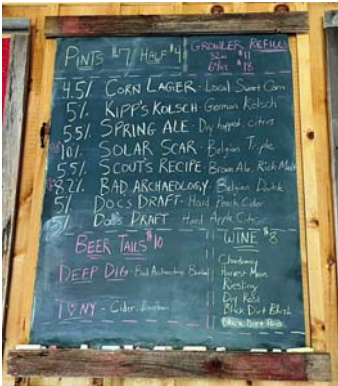 PINTS $7 HALF $4
GROWLER REFILLS
32oz $11
64oz $18
4.5% CORN LAGER - Local Sweet Corn
5% KIPP'S KOLSCH - German Kolsch
5.5% SPRING ALE - Dry hopped, citrus
10% SOLAR SCAR - Belgian Triple
5.5% SCOUT'S RECIPE - Brown Ale, Rich Malt
8.2% BAD ARCHAEOLOGY - Belgian
5% DOC'S DRAFT - Hard Peach Cider
5% DOC'S DRAFT - Hard Apple
BEER TAILS $10
DEEP DIG - Bad Archaeology
I ♡ NY - Cider
WINE $8
Chardonnay
Harvest Moon
Riesling
Dry Rosé
Black Dirt Blush
Black Dirt